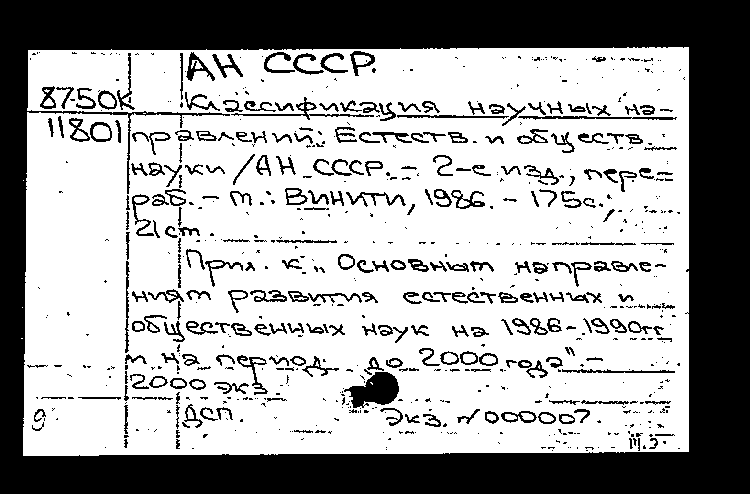 АН СССР.
87-50К Классификация научных на-
11801 правлений: Естеств. и обществ.
науки / АН СССР. - 2-е изд., пере-
раб. - М.: ВИНИТИ, 1986. - 175с.;
21 см.
Прил. к „Основным направле-
ниям развития естественных и
общественных наук на 1986-1990гг
и на период до 2000 года". -
2000 экз
9 ДСП. Экз. N 000007.